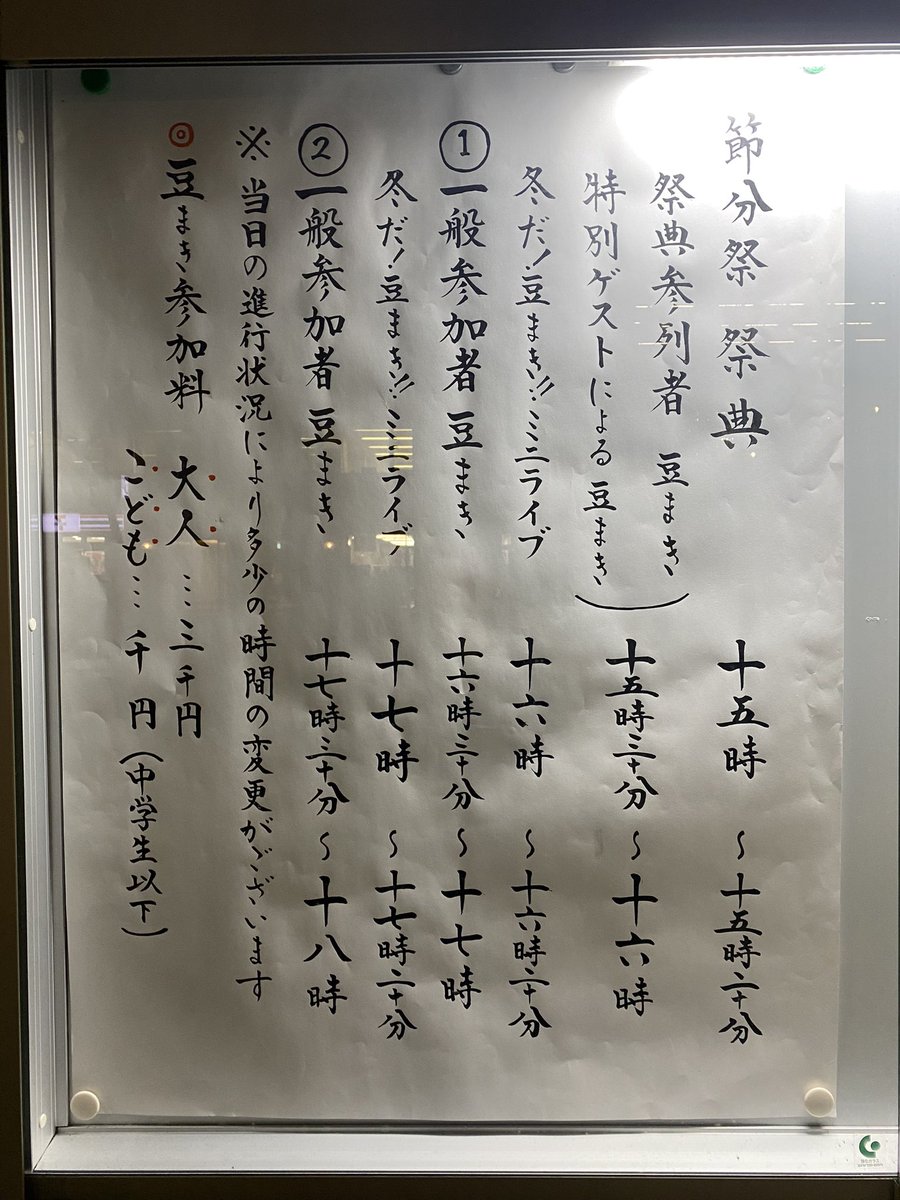 節分祭 祭典 十五時 〜 十五時二十分
祭典参列者 豆まき
特別ゲストによる 豆まき
十五時三十分 〜 十六時
冬だ!豆まき!!ミニライブ 十六時 〜 十六時二十分
①一般参加者 豆まき 十六時三十分 〜 十七時
冬だ!豆まき!!ミニライブ 十七時 〜 十七時二十分
②一般参加者 豆まき 十七時三十分 〜 十八時
※当日の進行状況により多少の時間の変更がございます
◎豆まき参加料 大人…三千円
こども…千円(中学生以下)